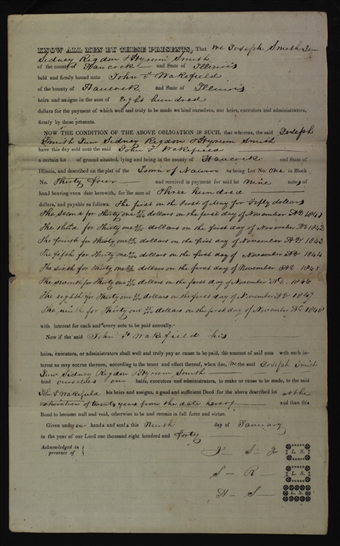 KNOW ALL MEN BY THESE PRESENTS, That we Joseph Smith Jun
Sidney Rigdon & Hyrum Smith
of the county of Hancock and State of Illinois
held and firmly bound unto John F Wakefield
of the county of Hancock and State of Illinois
heirs and assigns in the sum of Eight hundred
dollars for the payment of which well and truly to be made we bind ourselves, our heirs, executors and administrators,
firmly by these presents.
NOW THE CONDITION OF THE ABOVE OBLIGATION IS SUCH, that whereas, the said Joseph
Smith Jun Sidney Rigdon & Hyrum Smith
have this day sold unto the said John F Wakefield
a certain lot of ground situated, lying and being in the county of Hancock and State of
Illinois, and described on the plat of the Town of Nauvoo as being Lot No. One in Block
No. Thirty four and received in payment for said lot Nine notes of
hand bearing even date herewith, for the sum of Three hundred
dollars, and payable as follows. The first on the first of for Fifty dollars
The second for Thirty one dollars on the first day of November AD 1841
The third for Thirty one dollars on the first day of November AD 1842
The fourth for Thirty one dollars on the first day of November AD 1843
The fifth for Thirty one dollars on the first day of November AD 1844
The sixth for Thirty one dollars on the first day of November AD 1845
The seventh for Thirty one dollars on the first of November AD 1846
The eighth for Thirty one dollars on the first day of November AD 1847
The ninth for Thirty one dollars on the first day of November AD 1848
with interest for each and every note to be paid annually.
Now if the said John F Wakefield his
heirs, executors, or administrators shall well and truly pay or cause to be paid, the amount of said notes with such in-
terest as may accrue thereon, according to the tenor and effect thereof, when due, the said Joseph Smith
Jun Sidney Rigdon & Hyrum Smith
bind ourselves our heirs, executors and administrators, to make or cause to be made, to the said
John F Wakefield his heirs and assigns, a good and sufficient Deed for the above described lot at the
expiration of twenty years from the date hereof and then this
Bond to become null and void, otherwise to be and remain in full force and virtue.
Given under our hands and seals this Ninth day of January
in the year of our Lord one thousand eight hundred and forty
Acknowledged in
presence of
J S Jr L. S.
S R L. S.
H S L. S.